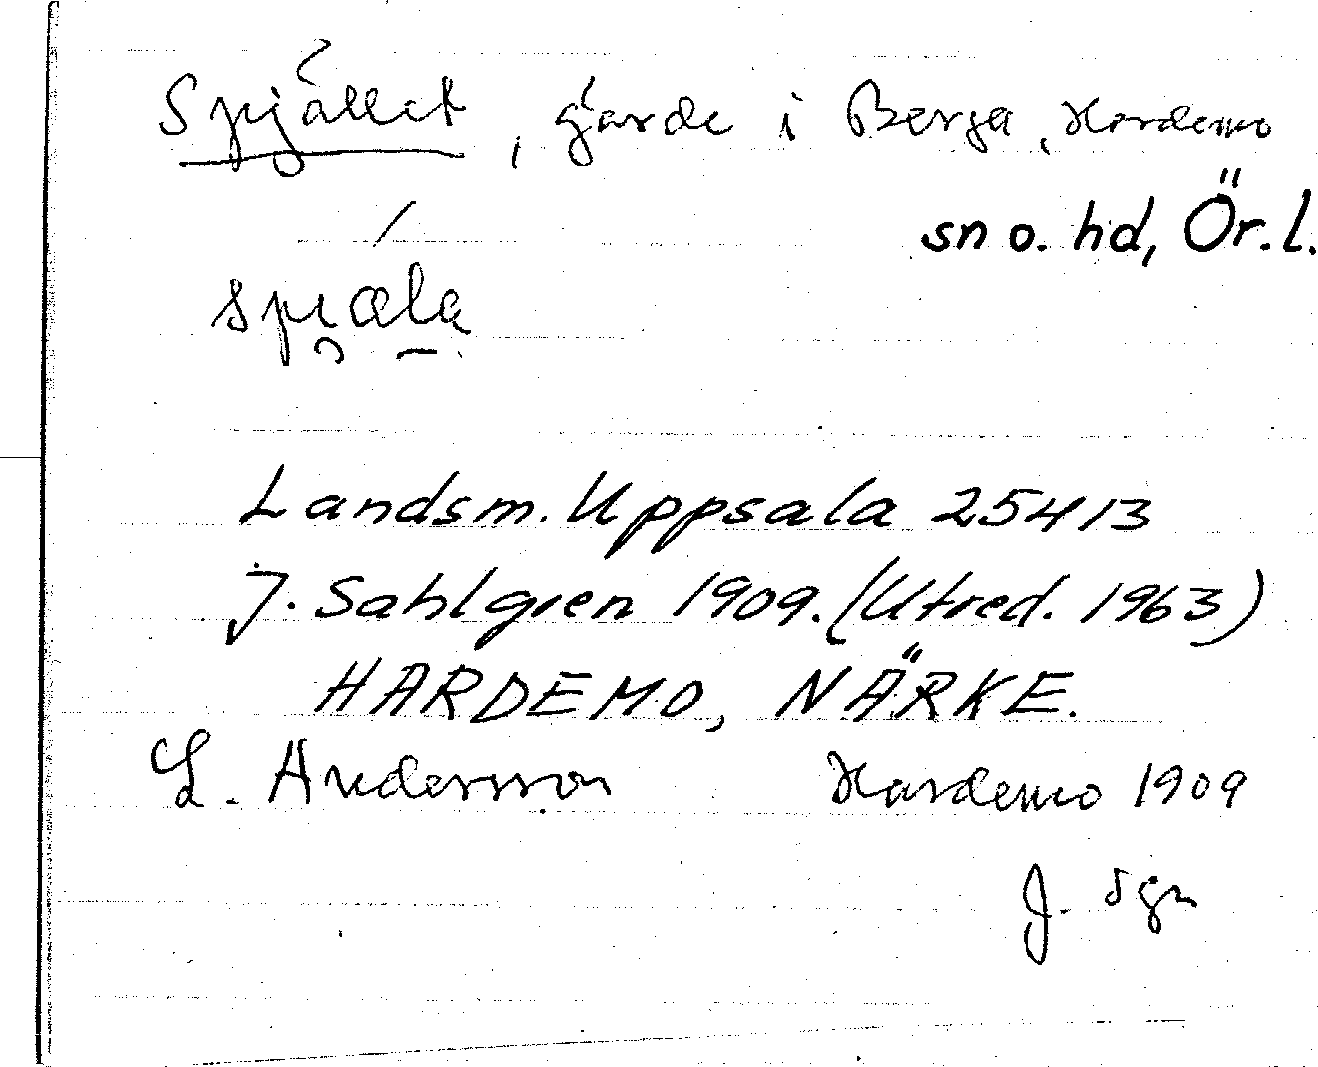 Spjället, gärde i Berga, Hardemo
sn o. hd, Ör. l.
spi̯æla
Landsm. Uppsala 25413
J. Sahlgren 1909. (Utred. 1963)
HARDEMO, NÄRKE.
L. Andersson Hardemo 1909
J. Sgn